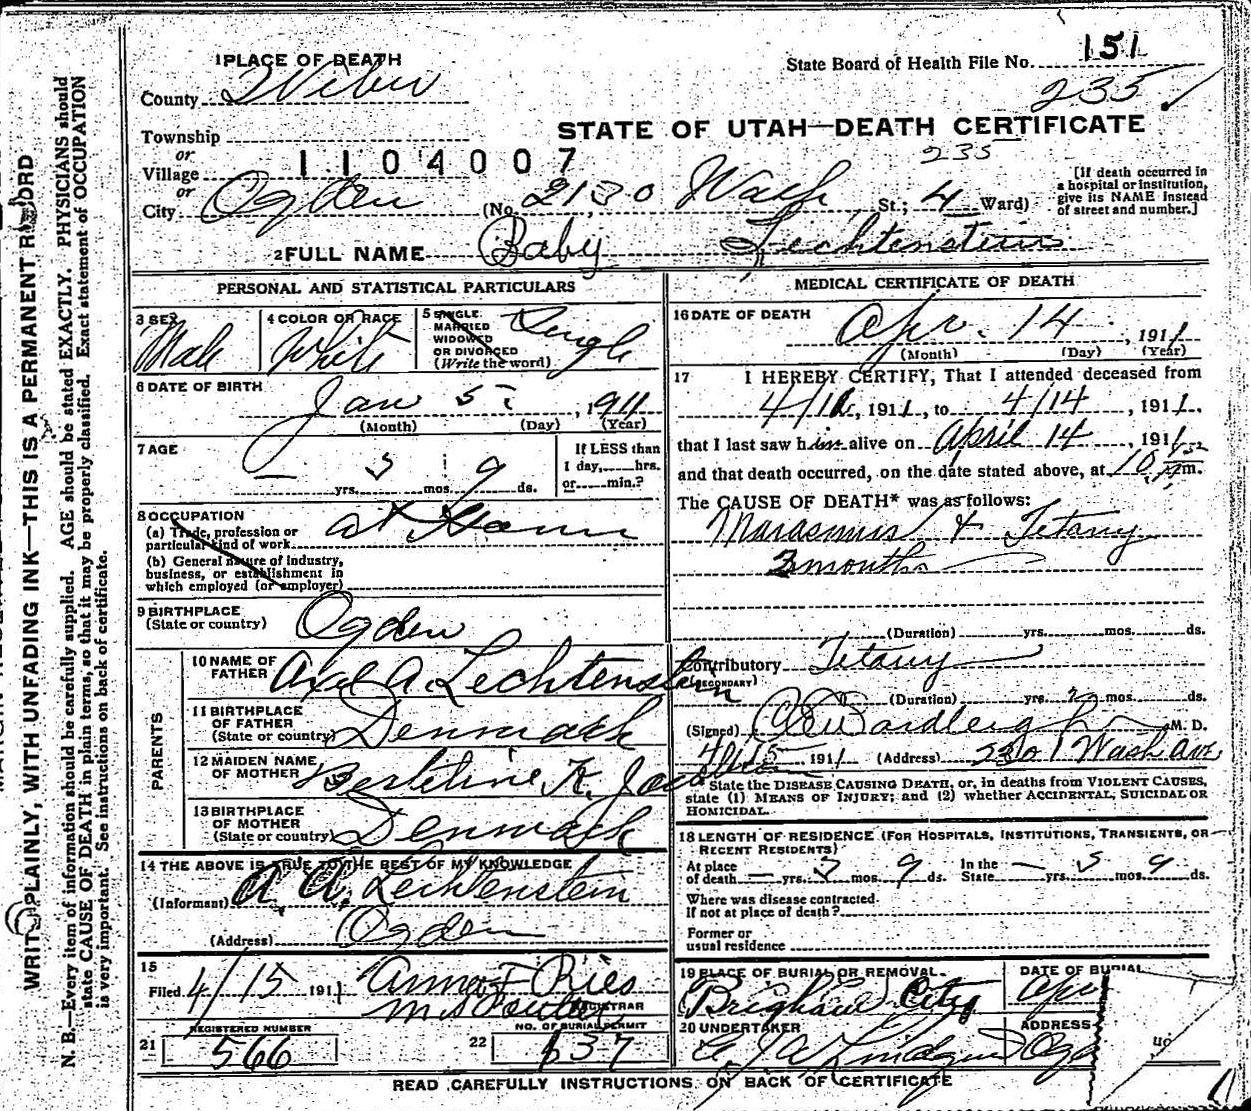 151
State Board of Health File No.
235
1 PLACE OF DEATH
County Weber
STATE OF UTAH—DEATH CERTIFICATE
Township
or
Village
1104007
235
or
City Ogden (No. 2130 Wash St.; 4 Ward)
[If death occurred in
a hospital or institution,
give its NAME instead
of street and number.]
2 FULL NAME Baby Lechtenstein
PERSONAL AND STATISTICAL PARTICULARS
3 SEX
Male
4 COLOR OR RACE
White
5 SINGLE
MARRIED
WIDOWED
OR DIVORCED
(Write the word)
Single
6 DATE OF BIRTH
Jan 5, 1911
(Month) (Day) (Year)
7 AGE
— yrs. 3 mos. 9 ds.
If LESS than
1 day, hrs.
or min.?
8 OCCUPATION
(a) Trade, profession or
particular kind of work at Home
(b) General nature of industry,
business, or establishment in
which employed (or employer)
9 BIRTHPLACE
(State or country) Ogden
PARENTS
10 NAME OF
FATHER Axel A. Lechtenstein
11 BIRTHPLACE
OF FATHER
(State or country) Denmark
12 MAIDEN NAME
OF MOTHER
13 BIRTHPLACE
OF MOTHER
(State or country) Denmark
14 THE ABOVE IS TRUE TO THE BEST OF MY KNOWLEDGE
(Informant) A. A. Lechtenstein
(Address) Ogden
15
Filed 4/15 1911 Anna F Ries
REGISTRAR
REGISTERED NUMBER
21 566
NO. OF BURIAL PERMIT
22 637
MEDICAL CERTIFICATE OF DEATH
16 DATE OF DEATH
Apr. 14, 1911
(Month) (Day) (Year)
17 I HEREBY CERTIFY, That I attended deceased from
1911, to 4/14, 1911.
that I last saw him alive on April 14, 191
and that death occurred, on the date stated above, at 10 m.
The CAUSE OF DEATH* was as follows:
Marasmus & Tetany
3 months
(Duration) yrs. mos. ds.
Contributory Tetany
(SECONDARY)
(Duration) yrs. mos. ds.
(Signed) M. D.
4/15 1911 (Address) 2301 Wash Ave
* State the DISEASE CAUSING DEATH, or, in deaths from VIOLENT CAUSES,
state (1) MEANS OF INJURY; and (2) whether ACCIDENTAL, SUICIDAL OR
HOMICIDAL.
18 LENGTH OF RESIDENCE (FOR HOSPITALS, INSTITUTIONS, TRANSIENTS, OR
RECENT RESIDENTS)
At place
of death — yrs. 3 mos. 9 ds.
In the
State — yrs. 3 mos. 9 ds.
Where was disease contracted
If not at place of death?
Former or
usual residence
19 PLACE OF BURIAL OR REMOVAL
Brigham City
DATE OF BURIAL
Apr
20 UNDERTAKER
ADDRESS
READ CAREFULLY INSTRUCTIONS ON BACK OF CERTIFICATE
WRITE PLAINLY, WITH UNFADING INK—THIS IS A PERMANENT RECORD
N. B.—Every item of information should be carefully supplied. AGE should be stated EXACTLY. PHYSICIANS should
state CAUSE OF DEATH in plain terms, so that it may be properly classified. Exact statement of OCCUPATION
is very important. See instructions on back of certificate.